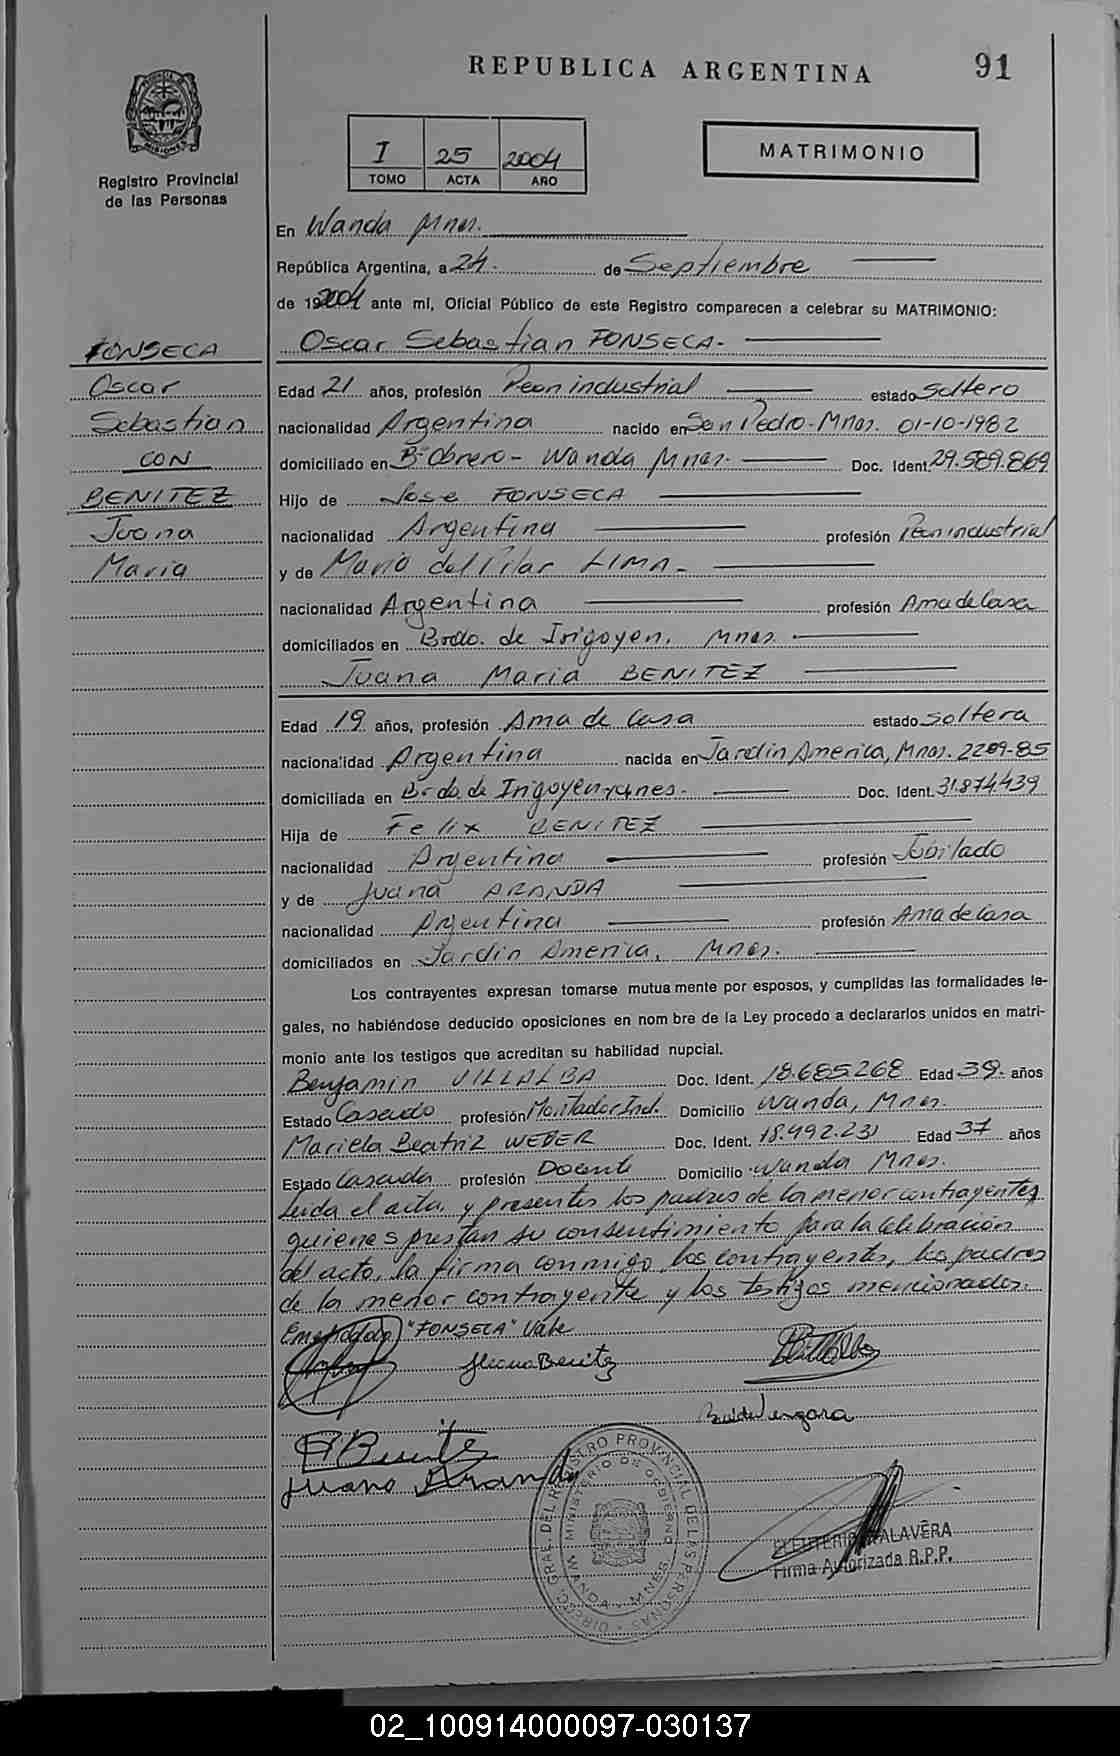 REPUBLICA ARGENTINA
91
I 25 2004
TOMO ACTA AÑO
MATRIMONIO
PROVINCIA DE MISIONES
Registro Provincial
de las Personas
FONSECA
Oscar
Sebastian
CON
BENITEZ
Juana
Maria
En Wanda Mnes.
República Argentina, a 24. de Septiembre
de 192004 ante mí, Oficial Público de este Registro comparecen a celebrar su MATRIMONIO:
Oscar Sebastian FONSECA.
Edad 21 años, profesión Peon industrial estado Soltero
nacionalidad Argentina nacido en San Pedro - Mnes. 01-10-1982
domiciliado en B° Obrero - Wanda Mnes. Doc. Ident. 29.589.869
Hijo de Jose FONSECA
nacionalidad Argentina profesión Peon industrial
y de Maria del Pilar LIMA.
nacionalidad Argentina profesión Ama de Casa
domiciliados en Brdo. de Irigoyen. Mnes.
Juana Maria BENITEZ
Edad 19 años, profesión Ama de Casa estado Soltera
nacionalidad Argentina nacida en Jardin America, Mnes. 2209-85
domiciliada en Brdo. de Irigoyen, Mnes. Doc. Ident. 31.874439
Hija de Felix BENITEZ
nacionalidad Argentina profesión Jubilado
y de Juana ARANDA
nacionalidad Argentina profesión Ama de Casa
domiciliados en Jardin America, Mnes.
Los contrayentes expresan tomarse mutua mente por esposos, y cumplidas las formalidades le-
gales, no habiéndose deducido oposiciones en nom bre de la Ley procedo a declararlos unidos en matri-
monio ante los testigos que acreditan su habilidad nupcial.
Benjamin VILLALBA Doc. Ident. 18.685.268 Edad 39. años
Estado Casado profesión Montador Ind. Domicilio Wanda, Mnes.
Mariela Beatriz WEBER Doc. Ident. 18.492.231 Edad 37 años
Estado Casada profesión Docente Domicilio Wanda Mnes.
Leida el acta, y presentes los padres de la menor contrayentes,
quienes prestan su consentimiento para la celebración
del acto, la firma conmigo, los contrayentes, los padres
de la menor contrayente y los testigos mencionados.
Enmendado "FONSECA" Vale
Juana Benitez
Vergara
F Benitez
Juana Aranda
DIRECC. GRAL. DEL REGISTRO PROVINCIAL DE LAS PERSONAS
MINISTERIO DE GOBIERNO
WANDA - MNES.
ELEUTERIO TALAVERA
Firma Autorizada R.P.P.
02_100914000097-030137